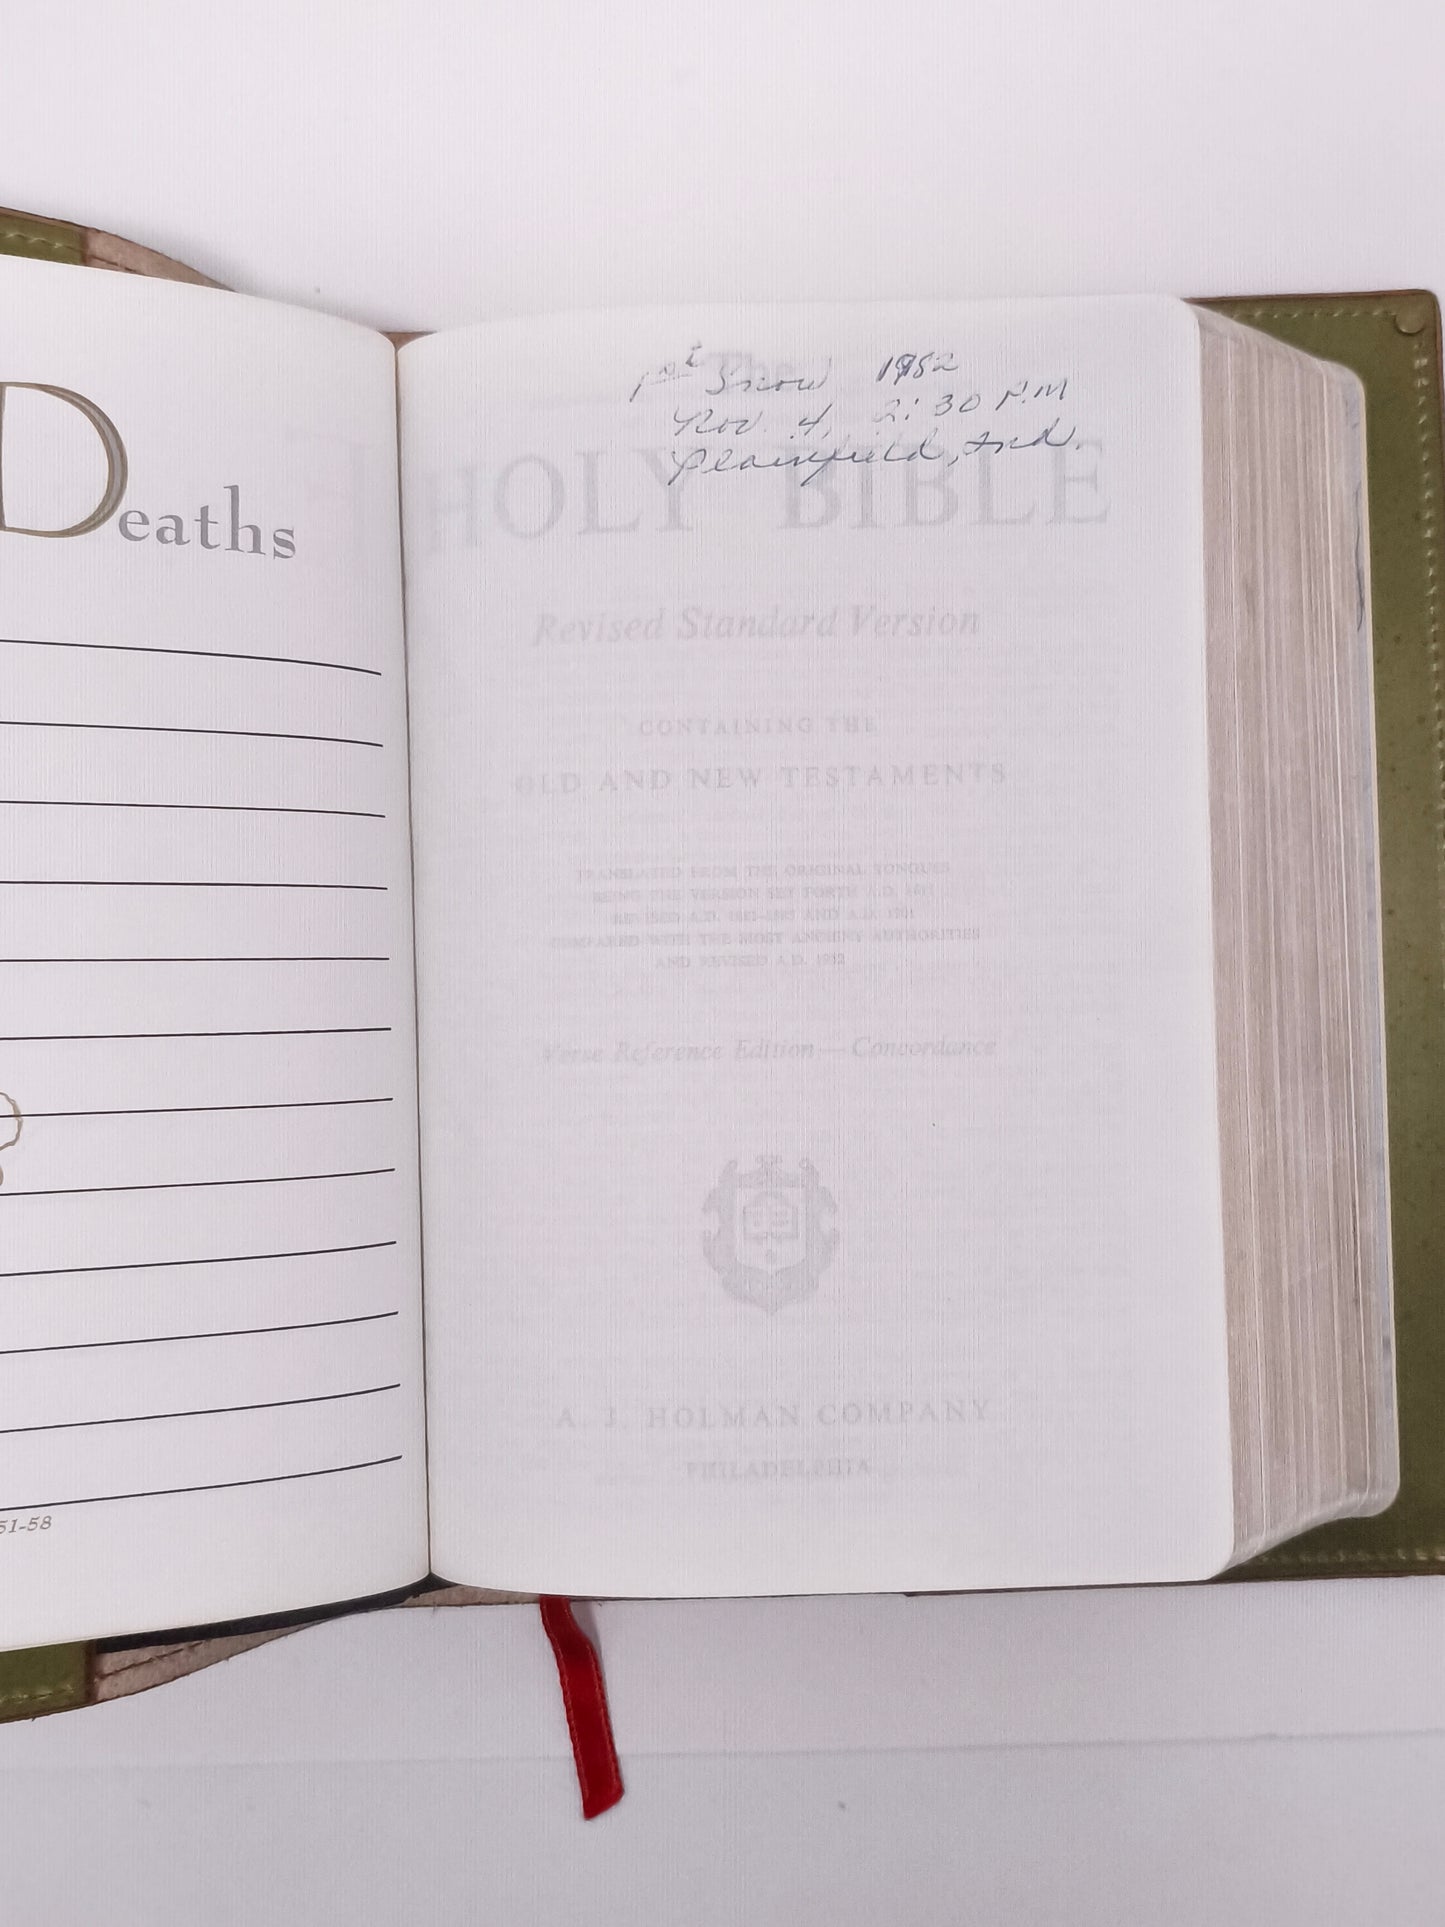 Deaths
51-58
1st Snow 1982
Nov. 4, 2:30 P.M
Plainfield, Ind.
The
HOLY BIBLE
Revised Standard Version
CONTAINING THE
OLD AND NEW TESTAMENTS
TRANSLATED FROM THE ORIGINAL TONGUES
BEING THE VERSION SET FORTH A.D. 1611
REVISED A.D. 1881-1885 AND A.D. 1901
COMPARED WITH THE MOST ANCIENT AUTHORITIES
AND REVISED A.D. 1952
Verse Reference Edition—Concordance
A. J. HOLMAN COMPANY
PHILADELPHIA